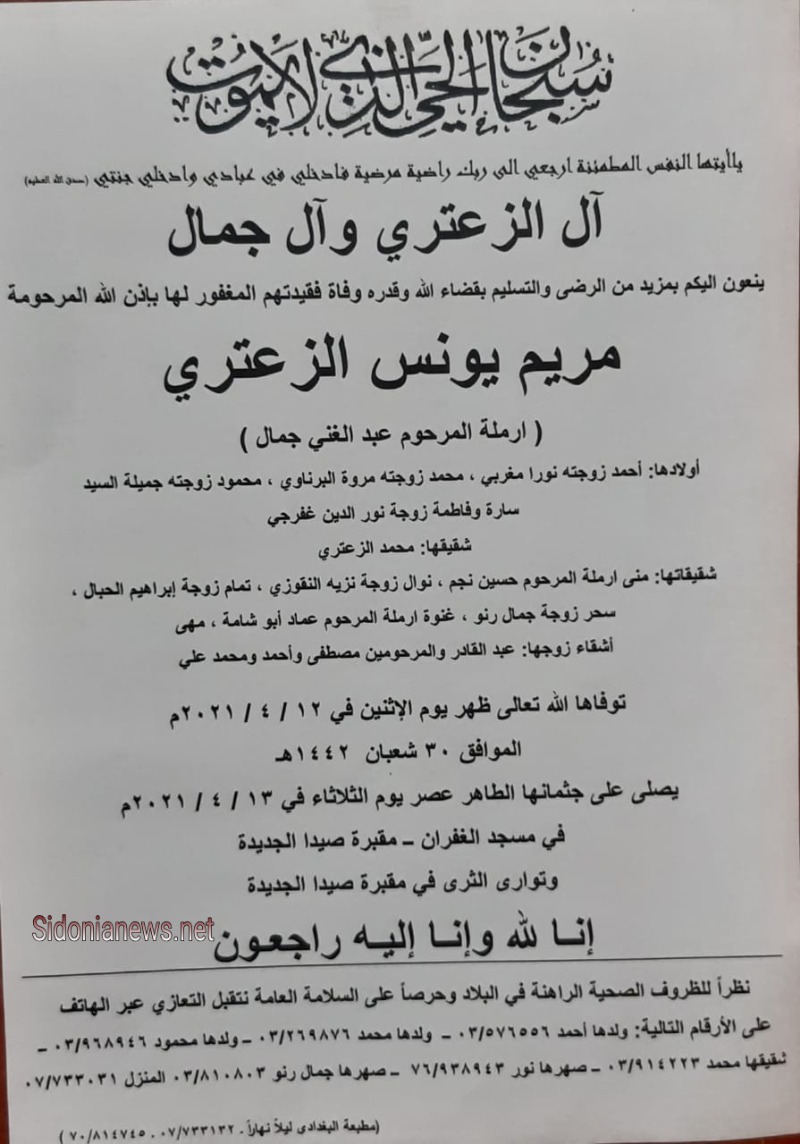 سبحان الحي الذي لا يموت
ياأيتها النفس المطمئنة ارجعي الى ربك راضية مرضية فادخلي في عبادي وادخلي جنتي (صدق الله العظيم)
آل الزعتري وآل جمال
ينعون اليكم بمزيد من الرضى والتسليم بقضاء الله وقدره وفاة فقيدتهم المغفور لها بإذن الله المرحومة
مريم يونس الزعتري
( ارملة المرحوم عبد الغني جمال )
أولادها: أحمد زوجته نورا مغربي ، محمد زوجته مروة البرناوي ، محمود زوجته جميلة السيد
سارة وفاطمة زوجة نور الدين غفرجي
شقيقها: محمد الزعتري
شقيقاتها: منى ارملة المرحوم حسين نجم ، نوال زوجة نزيه النقوزي ، تمام زوجة إبراهيم الحبال ،
سحر زوجة جمال رنو ، غنوة ارملة المرحوم عماد أبو شامة ، مهى
أشقاء زوجها: عبد القادر والمرحومين مصطفى وأحمد ومحمد علي
توفاها الله تعالى ظهر يوم الإثنين في ١٢ / ٤ / ٢٠٢١م
الموافق ٣٠ شعبان ١٤٤٢هـ
يصلى على جثمانها الطاهر عصر يوم الثلاثاء في ١٣ / ٤ / ٢٠٢١م
في مسجد الغفران – مقبرة صيدا الجديدة
وتوارى الثرى في مقبرة صيدا الجديدة
Sidonianews.net
إنا لله وإنا إليه راجعون
نظراً للظروف الصحية الراهنة في البلاد وحرصاً على السلامة العامة نتقبل التعازي عبر الهاتف
على الأرقام التالية: ولدها أحمد ٠٣/٥٧٦٥٥٦ – ولدها محمد ٠٣/٢٦٩٨٧٦ – ولدها محمود ٠٣/٩٦٨٩٤٦ –
شقيقها محمد ٠٣/٩١٤٢٢٣ – صهرها نور ٧٦/٩٣٨٩٤٣ – صهرها جمال رنو ٠٣/٨١٠٨٠٣ المنزل ٠٧/٧٣٣٠٣١
(مطبعة البغدادي ليلاً نهاراً . ٠٧/٧٣٣١٣٢ . ٧٠/٨١٤٧٤٥ )